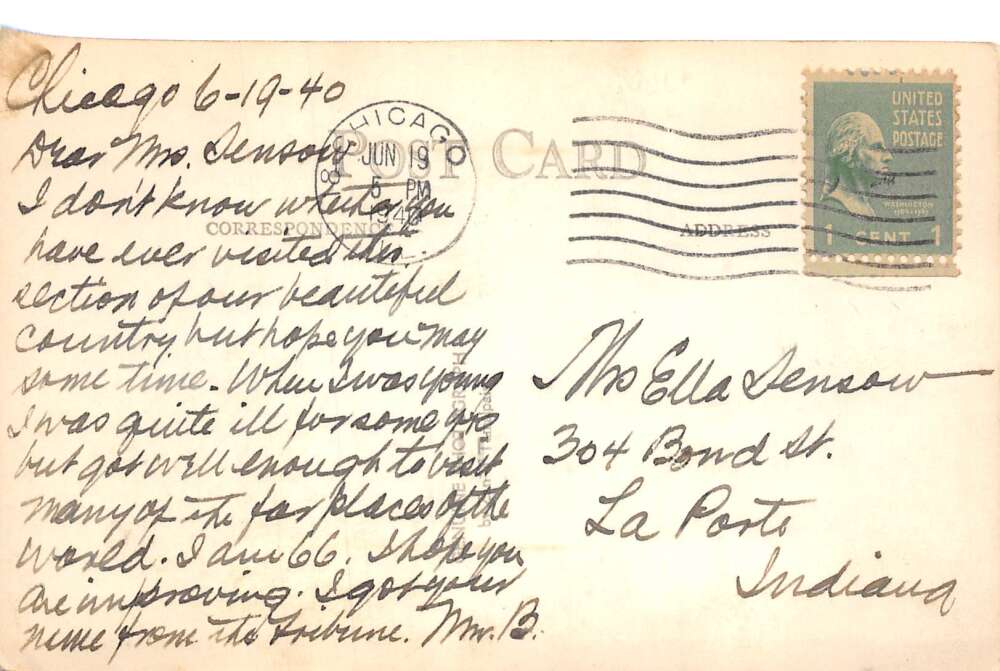 Chicago 6-19-40
Dear Mrs. Densow
I don't know whether you
have ever visited this
section of our beautiful
country, but hope you may
some time. When I was young
I was quite ill for some yrs
but got well enough to visit
many of the far places of the
world. I am 66. I hope you
are improving. I got your
name from the Tribune. Wm. B.
POST CARD
CORRESPONDENCE
ADDRESS
CHICAGO
JUN 19
5 PM
1940
UNITED
STATES
POSTAGE
WASHINGTON
1 CENT 1
Mrs Ella Densow
304 Bond St.
La Porte
Indiana